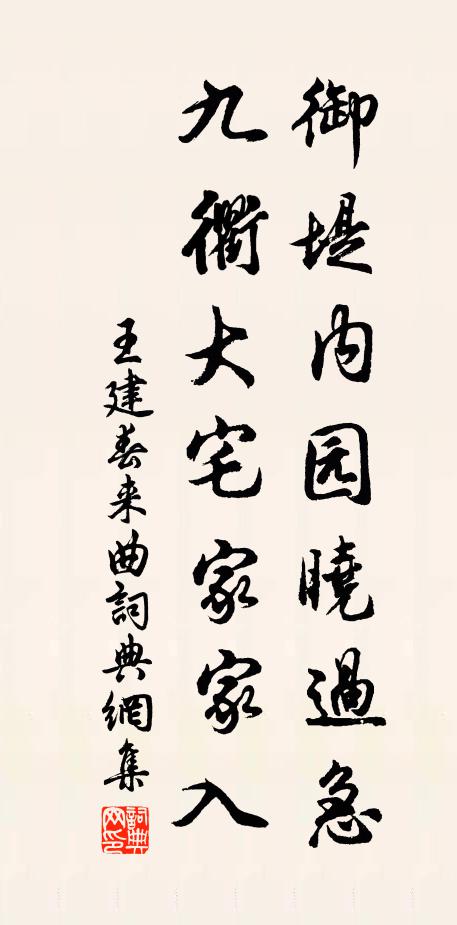 御堤内园曉過急
九衢大宅家家入
王建春来曲詞典網集
詞典網印